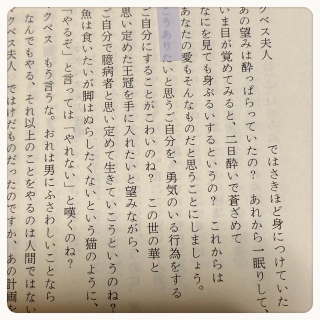 クベス夫人　ではさきほど身につけていた
あの望みは酔っぱらっていたの？　あれから一眠りして、
いま目が覚めてみると、二日酔いで蒼ざめて
なにを見ても身ぶるいするというの？　これからは
あなたの愛もそんなものだと思うことにしましょう。
こうありたいと思うご自分を、勇気のいる行為をする
ご自分にすることがこわいのね？　この世の華と
思い定めた王冠を手に入れたいと望みながら、
ご自分で臆病者と思い定めて生きていこうというのね？
魚は食いたいが脚はぬらしたくないという猫のように、
「やるぞ」と言っては「やれない」と嘆くのね？
クベス　もう言うな。おれは男にふさわしいことなら
なんでもやる、それ以上のことをやるのは人間ではない
クベス夫人　ではけだものだったのですか、あの計画を